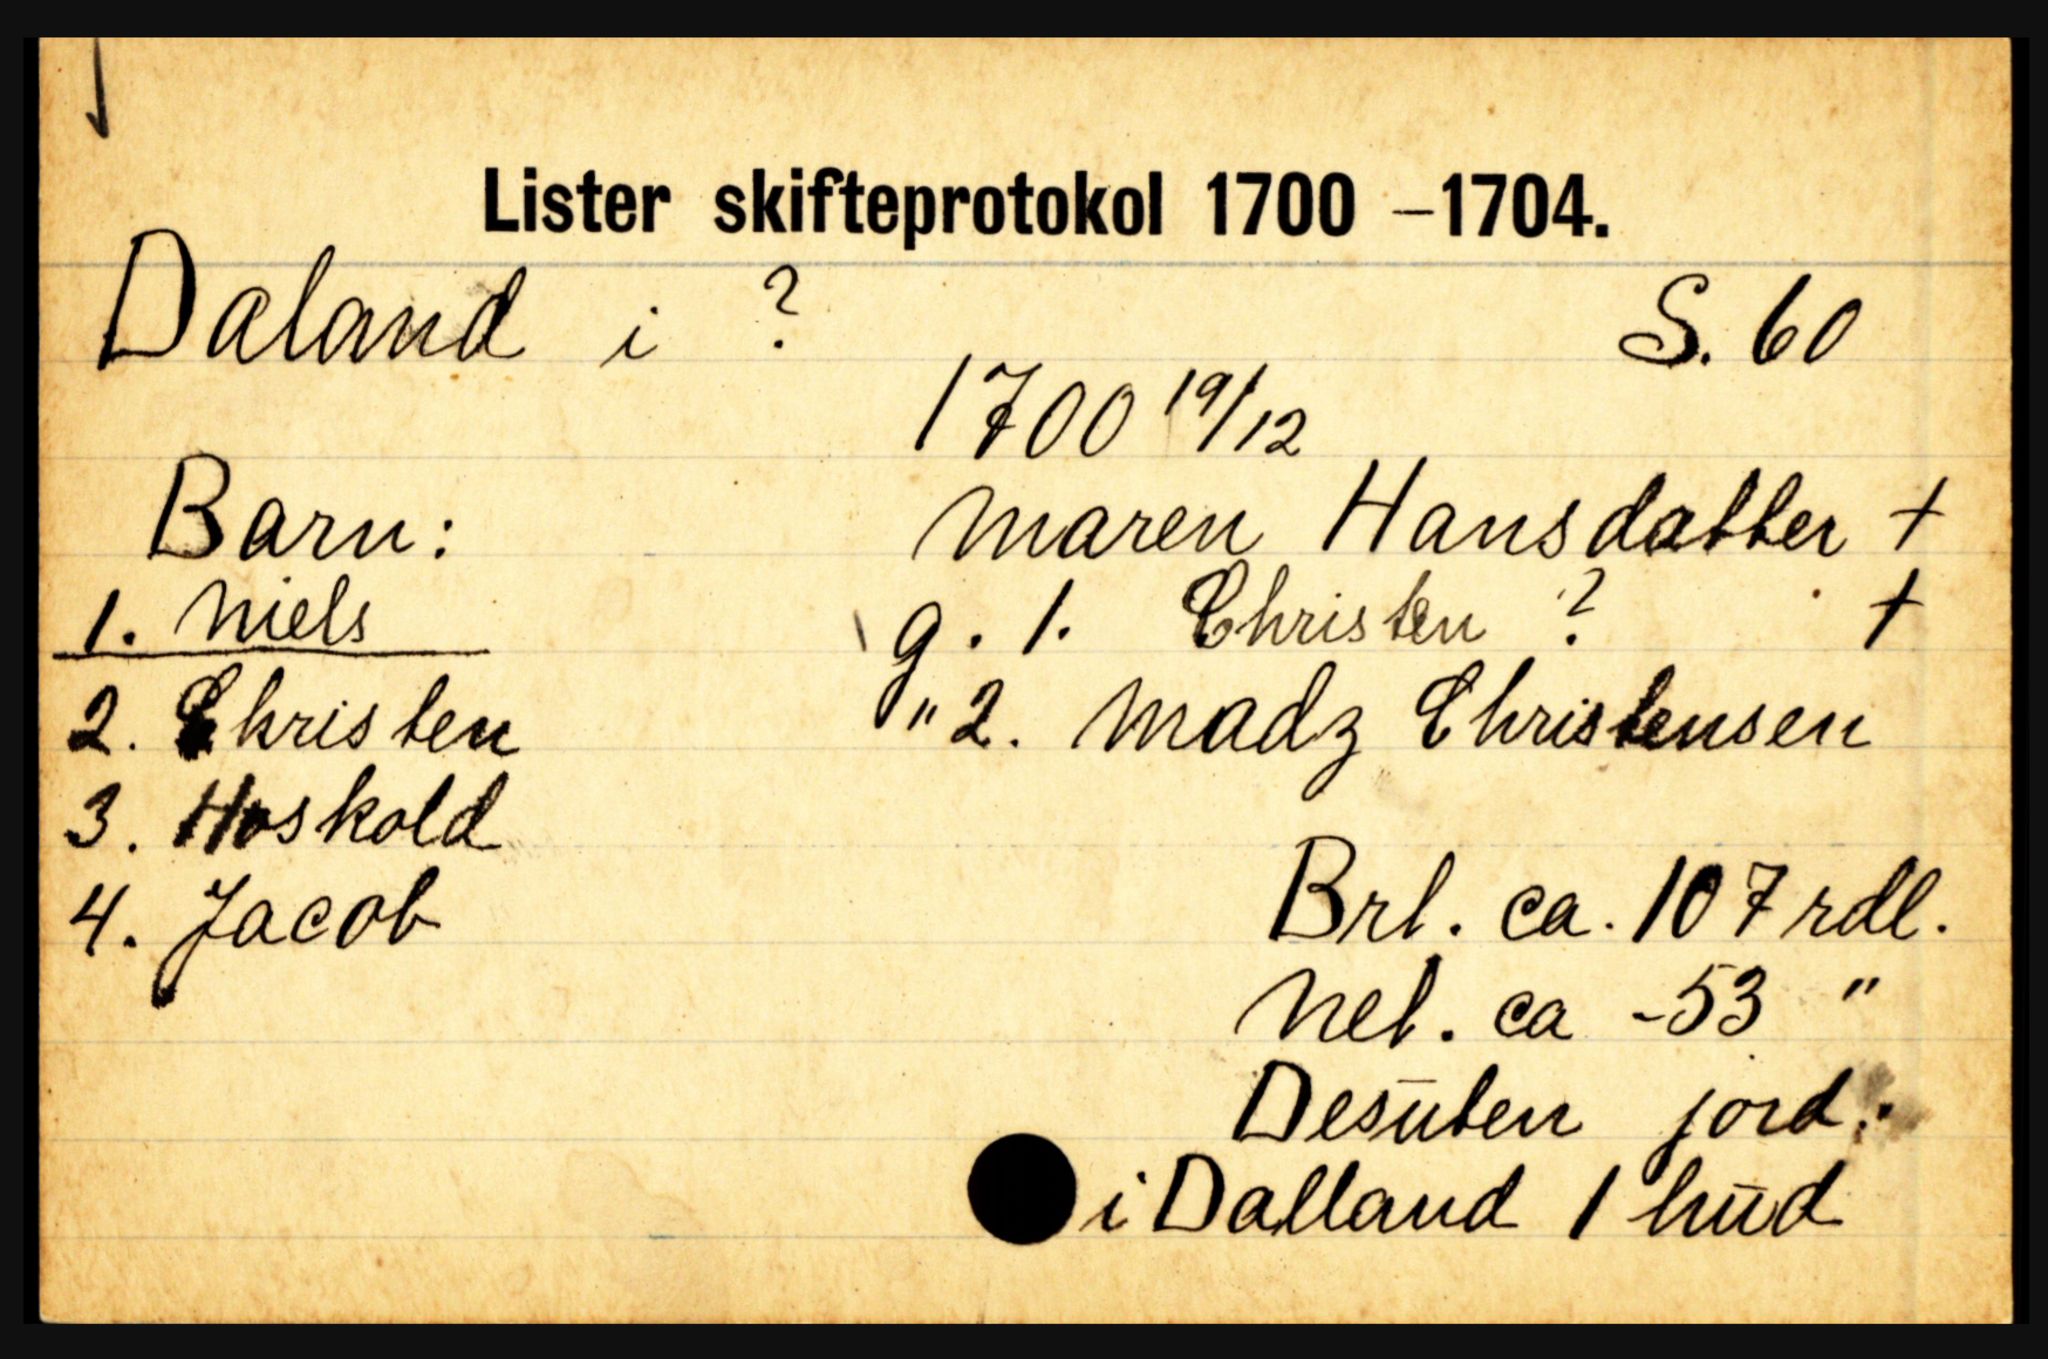 Lister skifteprotokol 1700 –1704.
Daland i ? S. 60
1700 19/12
Barn: Maren Hansdatter +
1. Niels g. 1. Christen ? +
2. Christen " 2. Madz Christensen
3. Hoskold
4. Jacob Brt. ca. 107 rdl.
Net. ca - 53 "
Desūten jord:
i Dalland 1 hūd